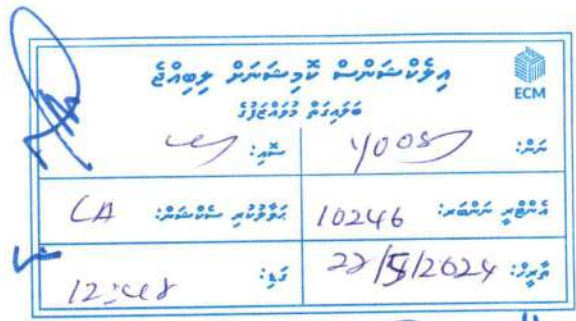 އިލެކްޝަންސް ކޮމިޝަނަށް ލިބިއްޖެ
ECM
ބަލައިގަތް މުވައްޒަފުގެ
ނަން: ސޮއި:
އެންޓްރީ ނަންބަރ: 10246 ޙަވާލުކުރި ސެކްޝަން: CA
ތާރީޚް: 22/5/2024 ގަޑި: 12:48